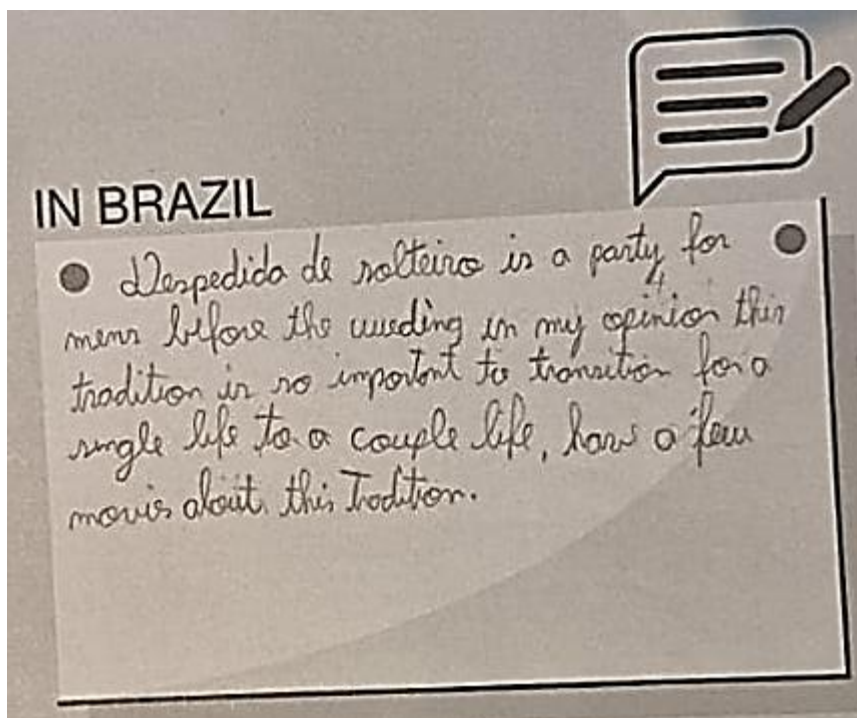 IN BRAZIL
Despedida de solteiro is a party for
mens before the wueding in my opinion this
tradition is so important to transition for a
single life to a couple life, have a few
movies about this Tradition.